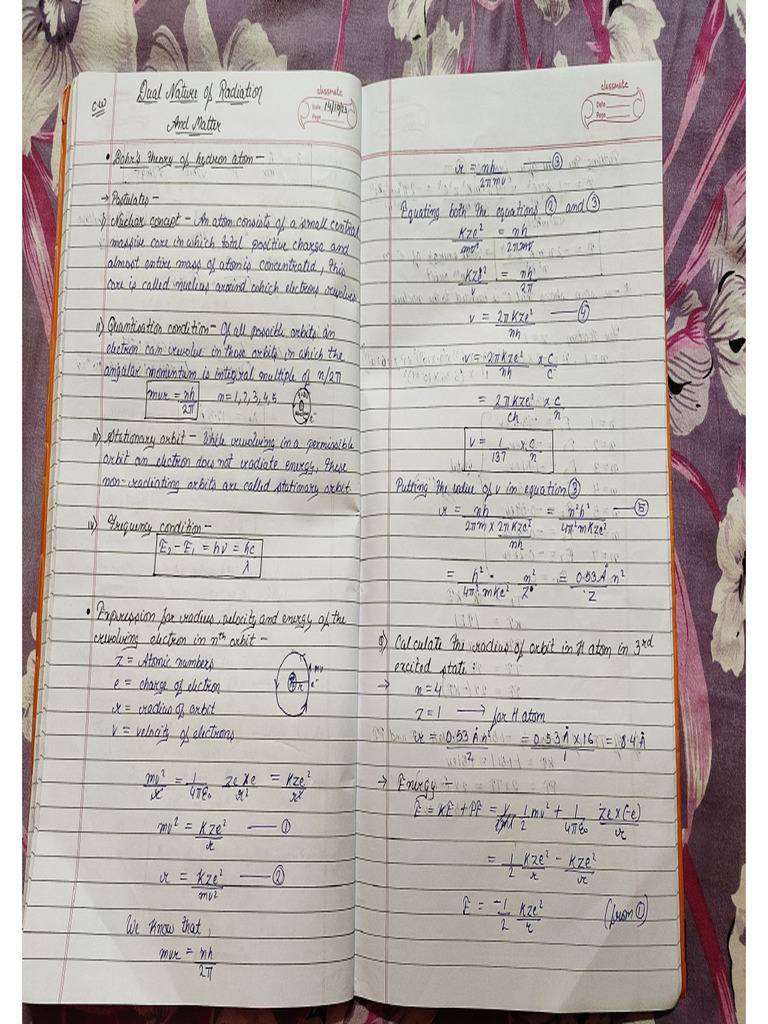 CW
Dual Nature of Radiation
And Matter
classmate
Date 14/10/23
Page
• Bohr's theory of hydron atom -
→ Postulates -
i) Nuclear concept - An atom consists of a small central
massive core in which total positive charge and
almost entire mass of atom is concentratid, this
core is called nucleus around which electrons revolves
ii) Quantisation condition - Of all possible orbits an
electron can revolve in those orbits in which the
angular momentum is integral multiple of n/2π
mvr = nh/2π n = 1, 2, 3, 4, 5
e⁻
iii) Stationary orbit - While revolving in a permissible
orbit an electron does not radiate energy, these
non-radiating orbits are called stationary orbit
iv) Frequency condition -
E₂ - E₁ = hν = hc/λ
• Expression for radius, velocity and energy of the
revolving electron in nth orbit -
Z = Atomic numbers
e = charge of electron
r = radius of orbit
v = velocity of electrons
mv
r e⁻
mv²/r = 1/4πε₀ Ze×e/r² = KZe²/r²
mv² = KZe²/r — ①
r = KZe²/mv² — ②
We know that,
mvr = nh/2π
classmate
Date
Page
r = nh/2πmv — ③
Equating both the equations ② and ③
KZe²/mv² = nh/2πmv
KZe²/v = nh/2π
v = 2πKZe²/nh — ④
v = 2πKZe²/nh × c/c
= 2πKZe²/ch × c/n
v = 1/137 × c/n
Putting the value of v in equation ③
r = nh/2πm × 2πKZe²/nh = n²h²/4π²mKZe² — ⑤
= h²/4π²mKe² · n²/Z = 0.53Å n²/Z
Q) Calculate the radius of orbit in H atom in 3rd
excited state:
→ n = 4
Z = 1 → for H atom
r = 0.53 Å n²/Z = 0.53Å × 16/1 = 8.4 Å
→ Energy -
E = KE + PE = 1/2 mv² + 1/4πε₀ Ze×(-e)/r
= 1/2 KZe²/r - KZe²/r
E = -1/2 KZe²/r (from ①)